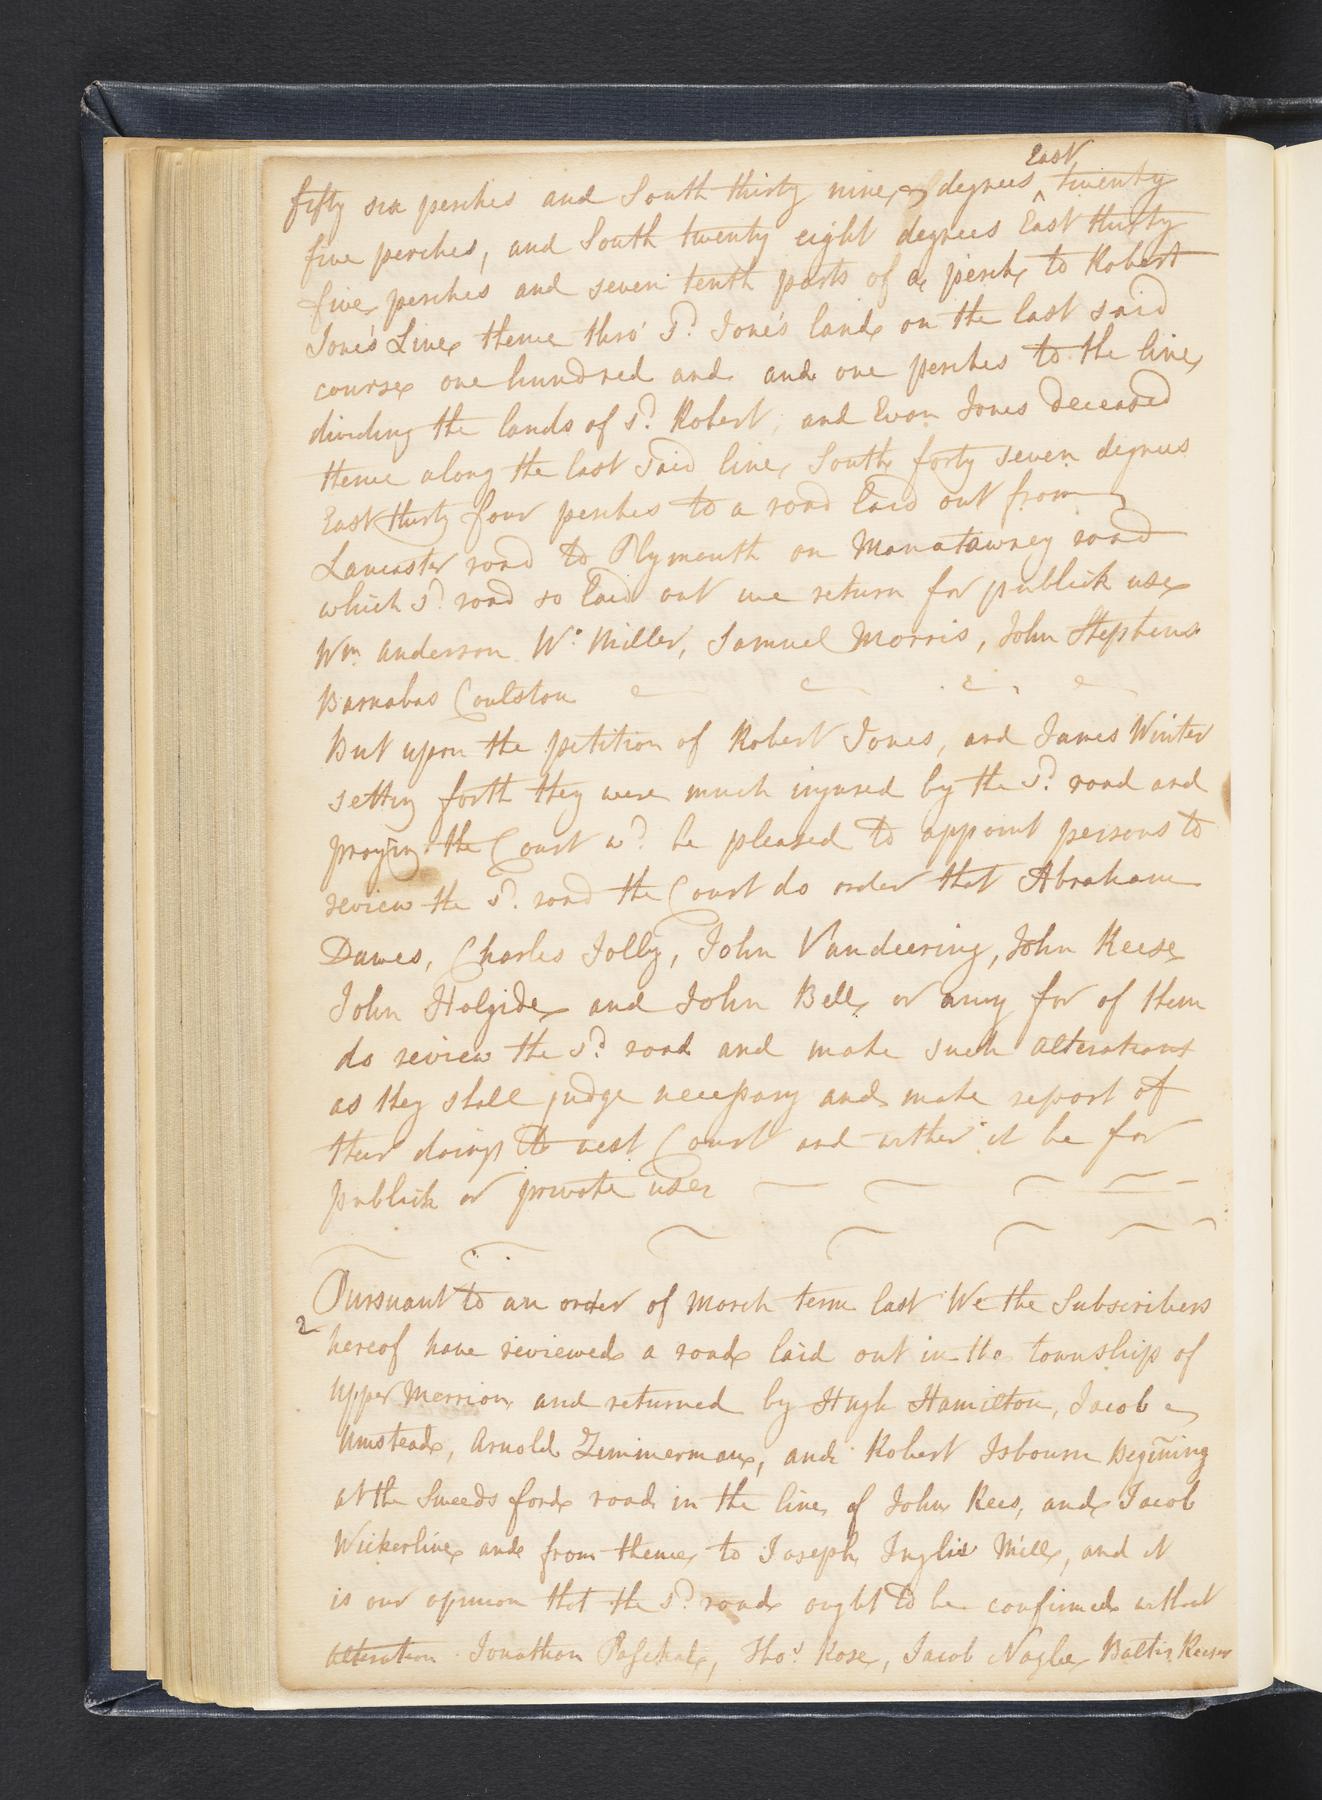 fifty six perches and South thirty nine & degrees ^East twenty
five perches, and South twenty eight degrees East thirty
five perches and seven tenth parts of a perch to Robert
Jone's Line thence thro' sd. Jone's land on the last said
course one hundred and and one perches to the line
dividing the lands of sd. Robert, and Evan Jones deceased
thence along the last said line South forty seven degrees
East thirty four perches to a road laid out from
Lancaster road to Plymouth on Manatawney road
which sd. road so laid out we return for publick use
Wm. anderson Wm. Miller, Samuel Morris, John Stephens
Barnabas Coulston
But upon the petition of Robert Jones, and James Winter
setting forth they were much injured by the sd. road and
praying the Court wd. be pleased to appoint persons to
review the sd. road the Court do order that Abraham
Dawes, Charles Jolly, John Vandeering, John Reese
John Holgide and John Bell or any for of them
do review the sd. road and make such alterations
as they shall judge necessary and make report of
their doings to next Court and wither it be for
publick or private use
Pursuant to an order of March term last We the Subscribers
2
hereof have reviewed a road laid out in the township of
Upper Merrion and returned by Hugh Hamilton, Jacob
Umstead, Arnold Zimmerman, and Robert Isbourn Begining
at the Sweeds ford road in the line of John Rees, and Jacob
Wickerline and from thence to Joseph Inglis Mill, and it
is our opinion that the sd. road ought to be confirmed without
alteration Jonathan Paschal, Thos. Rose, Jacob Nagle Baltis Reeser